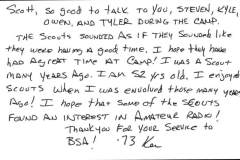 Scott, so good to talk to you, Steven, Kyle,
Owen, and Tyler during the camp.
The Scouts sounded as if they sounded like
they were having a good time. I hope they have
had a great time at camp! I was a Scout
many years ago. I am 52 yrs old. I enjoyed
Scouts when I was envolved those many years
ago! I hope that some of the Scouts
found an interest in Amateur Radio!
Thank you for your service to
BSA! 73 Ken